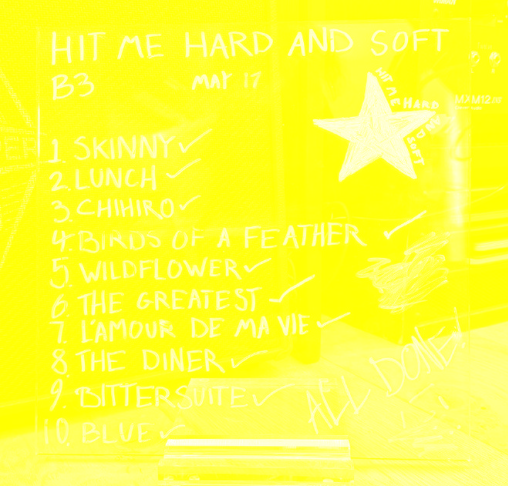 HIT ME HARD AND SOFT
B3 MAY 17
HIT ME HARD AND SOFT
1. SKINNY ✓
2. LUNCH ✓
3. CHIHIRO ✓
4. BIRDS OF A FEATHER ✓
5. WILDFLOWER ✓
6. THE GREATEST ✓
7. L'AMOUR DE MA VIE ✓
8. THE DINER ✓
9. BITTERSUITE ✓
10. BLUE ✓
ALL DONE!